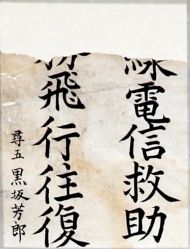 線電信救助
飛行往復
尋五 黒坂芳郎